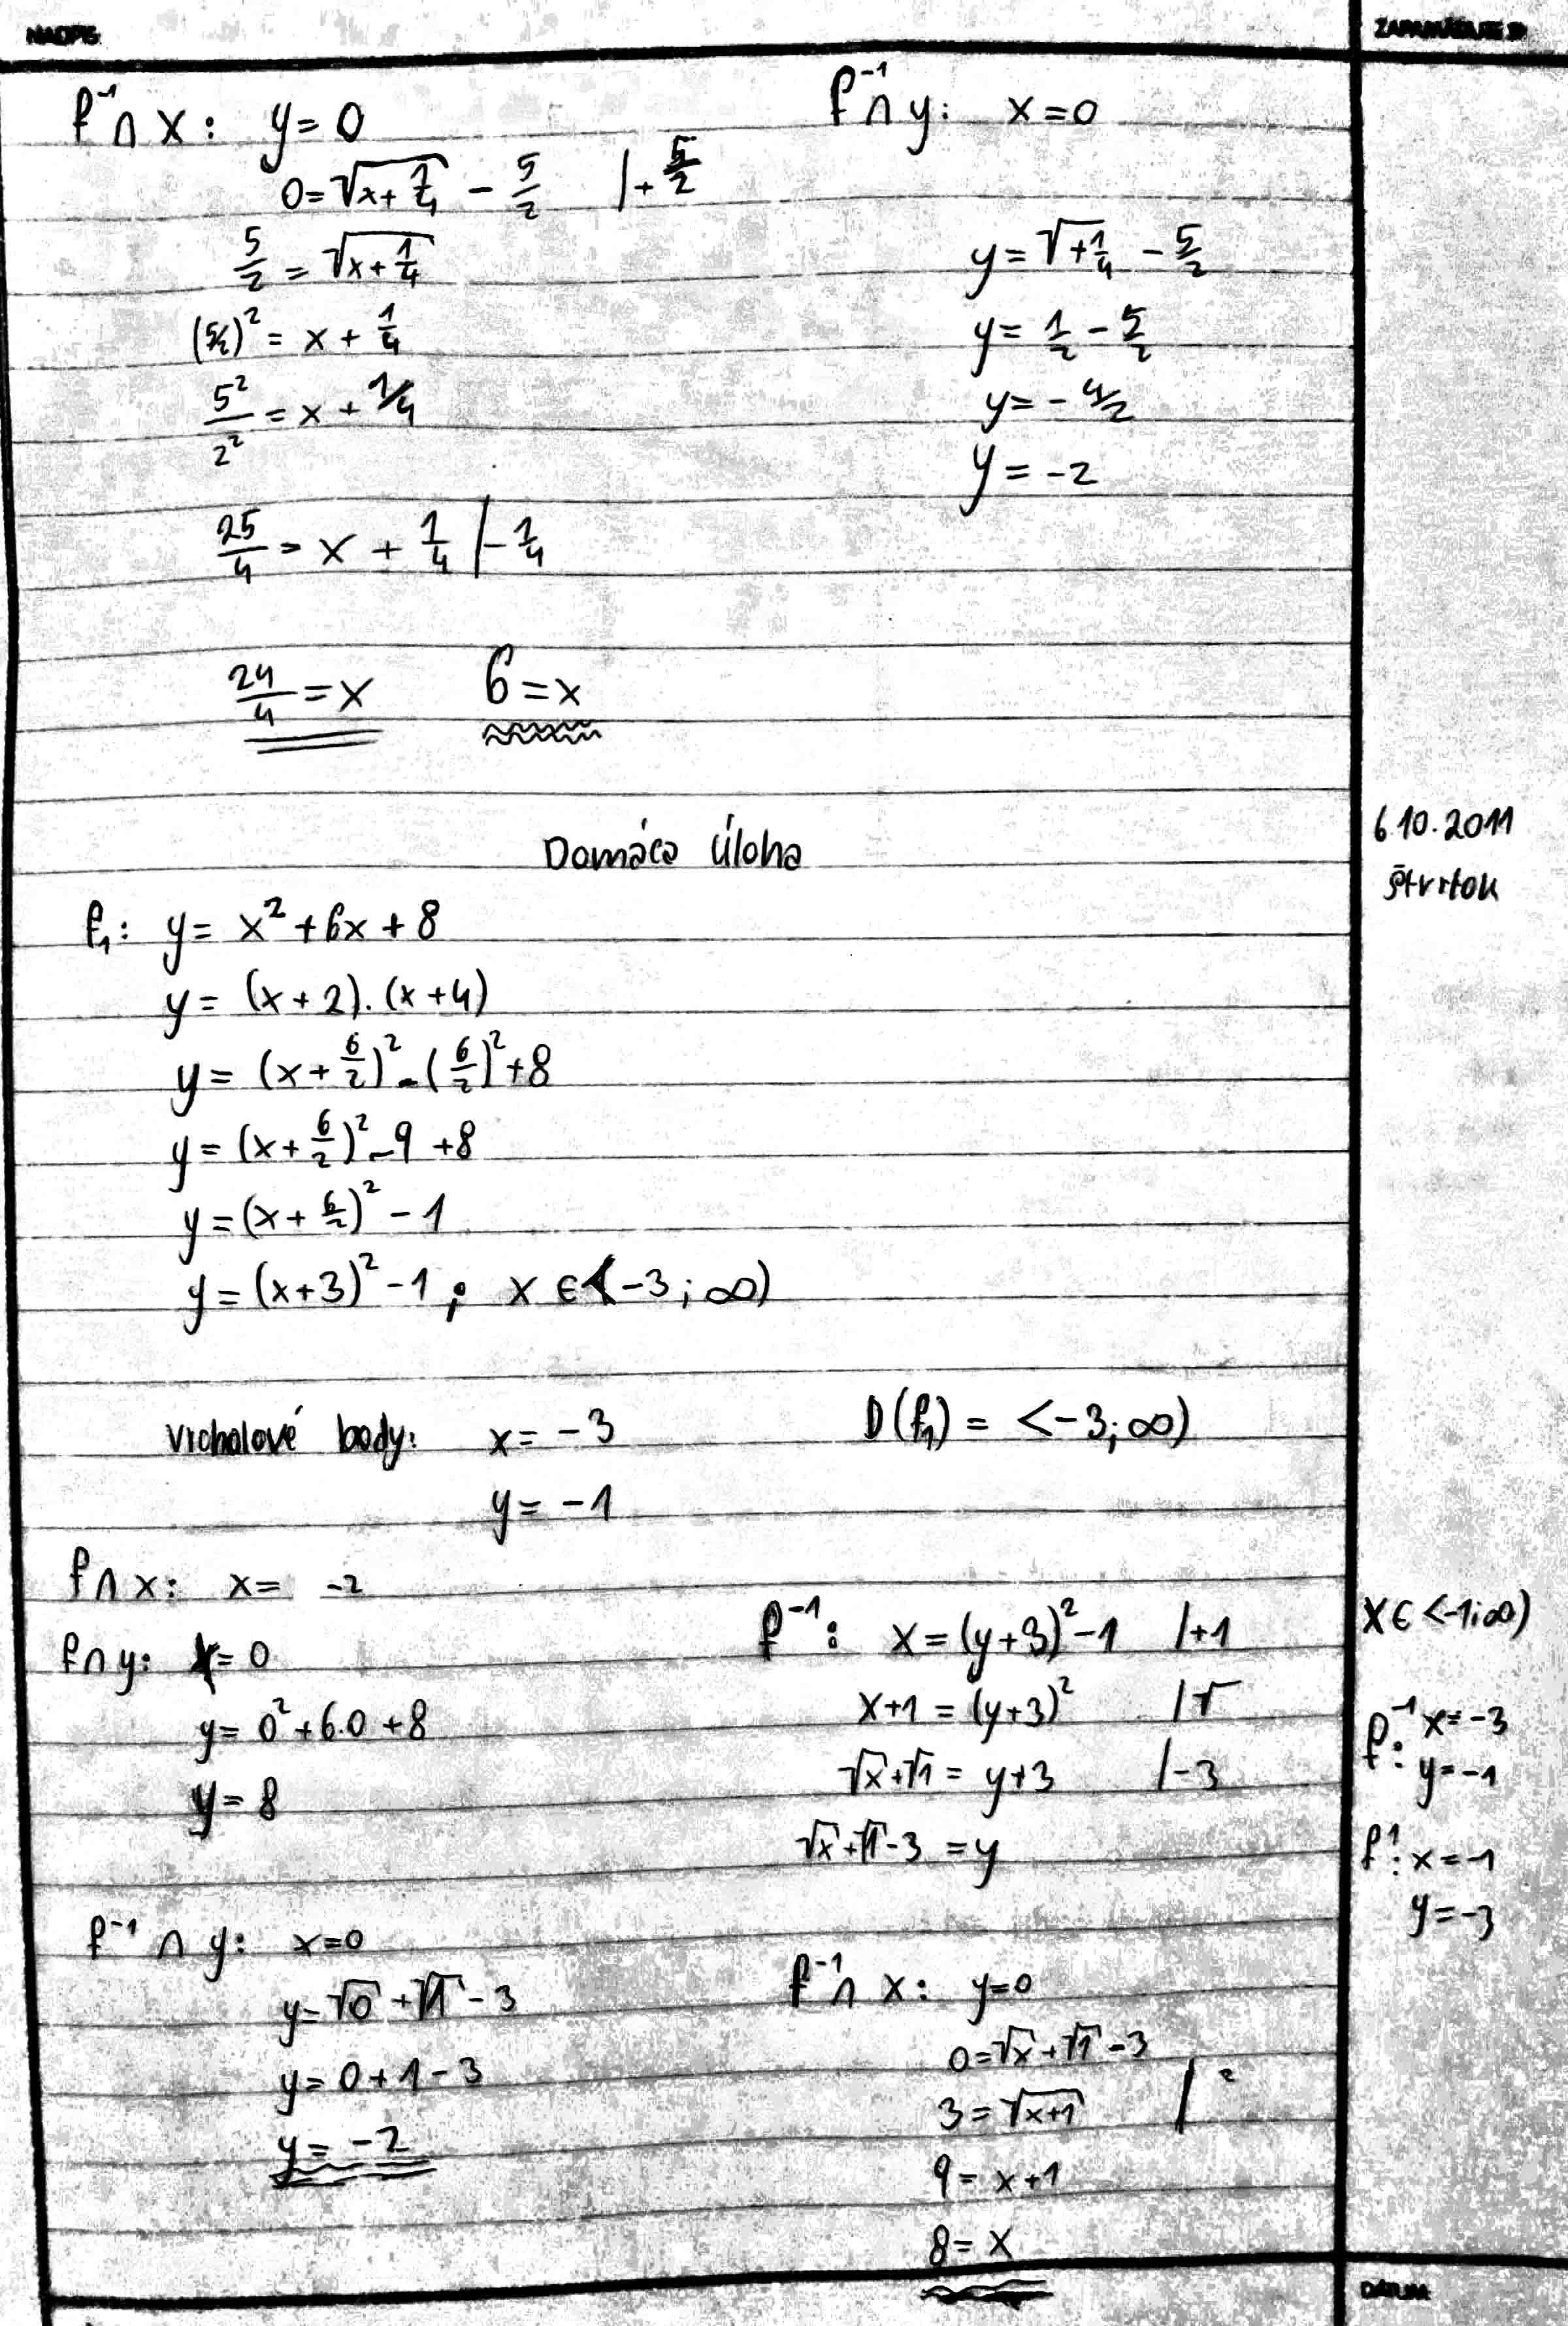 NADPIS
ZAPAMÄTAJTE SI
f⁻¹ ∩ x: y = 0
0 = √(x + 1/4) - 5/2 | + 5/2
5/2 = √(x + 1/4)
(5/2)² = x + 1/4
5²/2² = x + 1/4
25/4 = x + 1/4 | - 1/4
24/4 = x 6 = x
f⁻¹ ∩ y: x = 0
y = √(+1/4) - 5/2
y = 1/2 - 5/2
y = - 4/2
y = -2
Domáca úloha
6.10.2011
štvrtok
f₁: y = x² + 6x + 8
y = (x + 2).(x + 4)
y = (x + 6/2)² - (6/2)² + 8
y = (x + 6/2)² - 9 + 8
y = (x + 6/2)² - 1
y = (x+3)² - 1 ; x ∈ <-3; ∞)
vrcholové body: x = -3
y = -1
D(f₁) = <-3; ∞)
f ∩ x: x = -2
f ∩ y: x = 0
y = 0² + 6.0 + 8
y = 8
f⁻¹: x = (y+3)² - 1 /+1
x+1 = (y+3)² /√
√x + √1 = y+3 /-3
√x + √1 - 3 = y
x ∈ <-1; ∞)
f⁻¹: x = -3
y = -1
f⁻¹: x = -1
y = -3
f⁻¹ ∩ y: x = 0
y = √0 + √1 - 3
y = 0 + 1 - 3
y = -2
f⁻¹ ∩ x: y = 0
0 = √x + √1 - 3
3 = √(x+1) /²
9 = x + 1
8 = x
DÁTUM